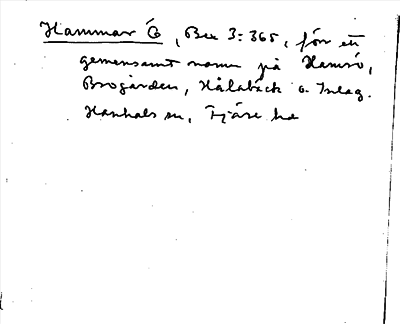 Hammar Ö, Bee 3:365, förr ett
gemensamt namn på Hamrö,
Brogården, Hålabäck o. Inlag.
Hanhals sn, Fjäre hd